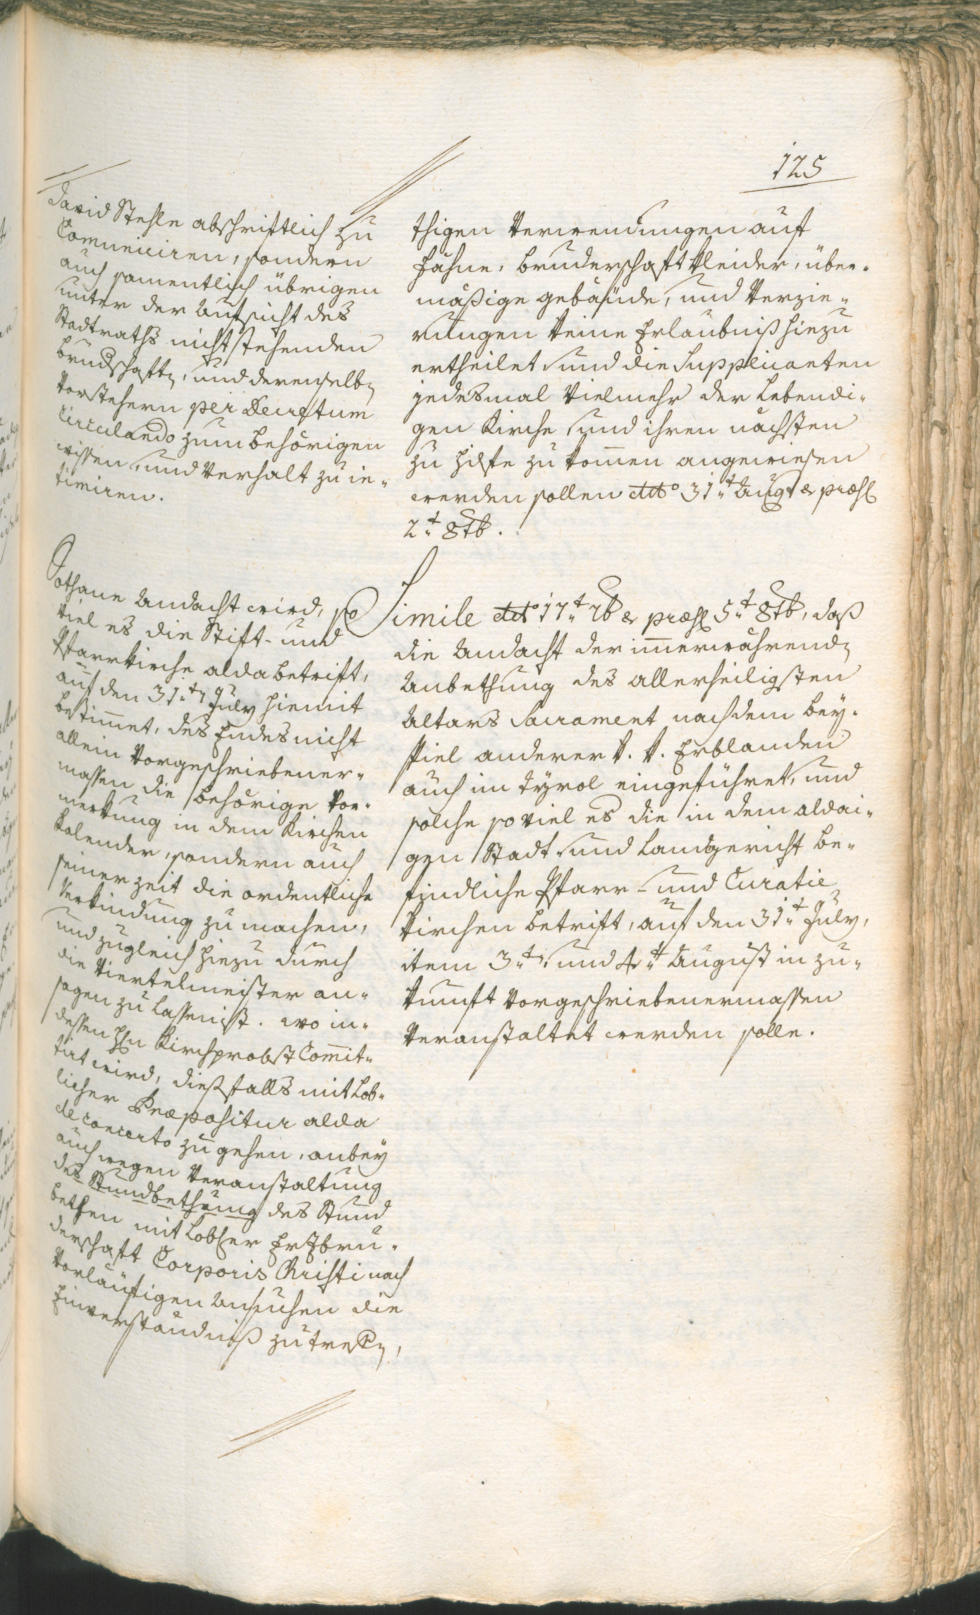 125
David Stehle abschriftlich zu
Comuniciren, sondern
auch samentlich übrigen
unter der Aufsicht des
Stadtraths nicht stehenden
brudschaftn, und derenselbn
Vorstehern per Decretum
Circulando zum behörigen
wissen, und Verhalt zu in-
timiren.
Sothane Andacht wird, so
viel es die Stift- und
Pfarrkirche alda betrift,
auf den 31.tn July hiemit
bestimet, des Endes nicht
allein Vorgeschriebener-
massen die behörige Vor-
merkung in dem Kirchen
Kalender, sondern auch
seiner zeit die ordentliche
Verkindung zu machen,
und zugleich hiezu durch
die Viertelmeister an-
sagen zu lassen ist. wo in-
dessen Hn Kirchprobst Comit-
tirt wird, diesfalls mit Lob-
licher Præpositur alda
de concerto zu gehen, anbey
auch wegen Veranstaltung
des Stundbethung des Stund
bethen mit Lobler Erzbru-
derschaft Corporis Christi nach
Vorläufigen Ansuchen die
Einverständniß zu trefn,
thigen Verwendungen auf
Fähne, bruderschaft Kleider, über-
mäßige gebäude, und Verzie-
rungen keine Erlaubniß hiezu
ertheilet und die Supplicanten
jedesmal Vielmehr der Lebendi-
gen Kirche und ihren nächsten
zu Hilfe zu komen angewiesen
werden sollen ddto 31.t Augt & præs
2.t 8tb.
Simile ddto 17.t 7b & præs 5.t 8tb, daß
die Andacht der immerwährendn
Anbethung des allerheiligsten
Altars Sacrament nach dem bey-
spiel anderer k. k. Erblanden
auch im Tyrol eingeführet, und
solche so viel es die in dem aldai-
gen Stadt- und Landgericht be-
findliche Pfarr- und Curatie
Kirchen betrift, auf den 31.t July,
item 3.tn und 4.t August in zu-
kunft Vorgeschriebenermassen
Veranstaltet werden solle.